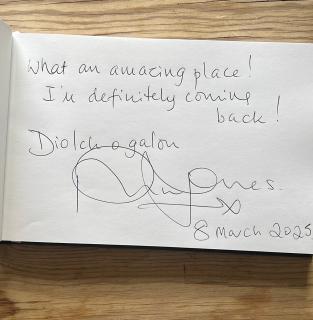 What an amazing place!
I'm definitely coming
back!
Diolch o galon
Jones.
x
8 March 2025